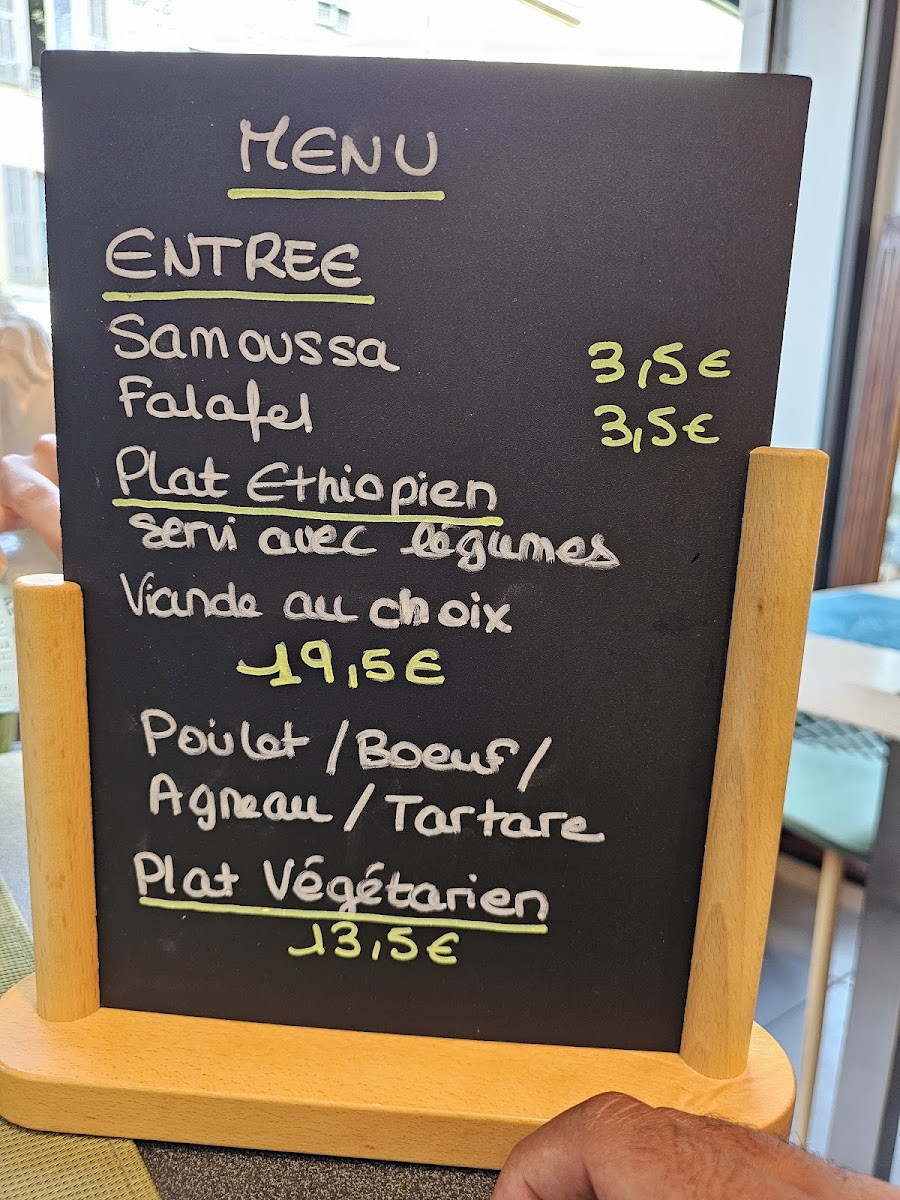 MENU
ENTREE
Samoussa 3,5€
Falafel 3,5€
Plat Ethiopien
servi avec légumes
Viande au choix
19,5€
Poulet / Boeuf /
Agneau / Tartare
Plat Végétarien
13,5€